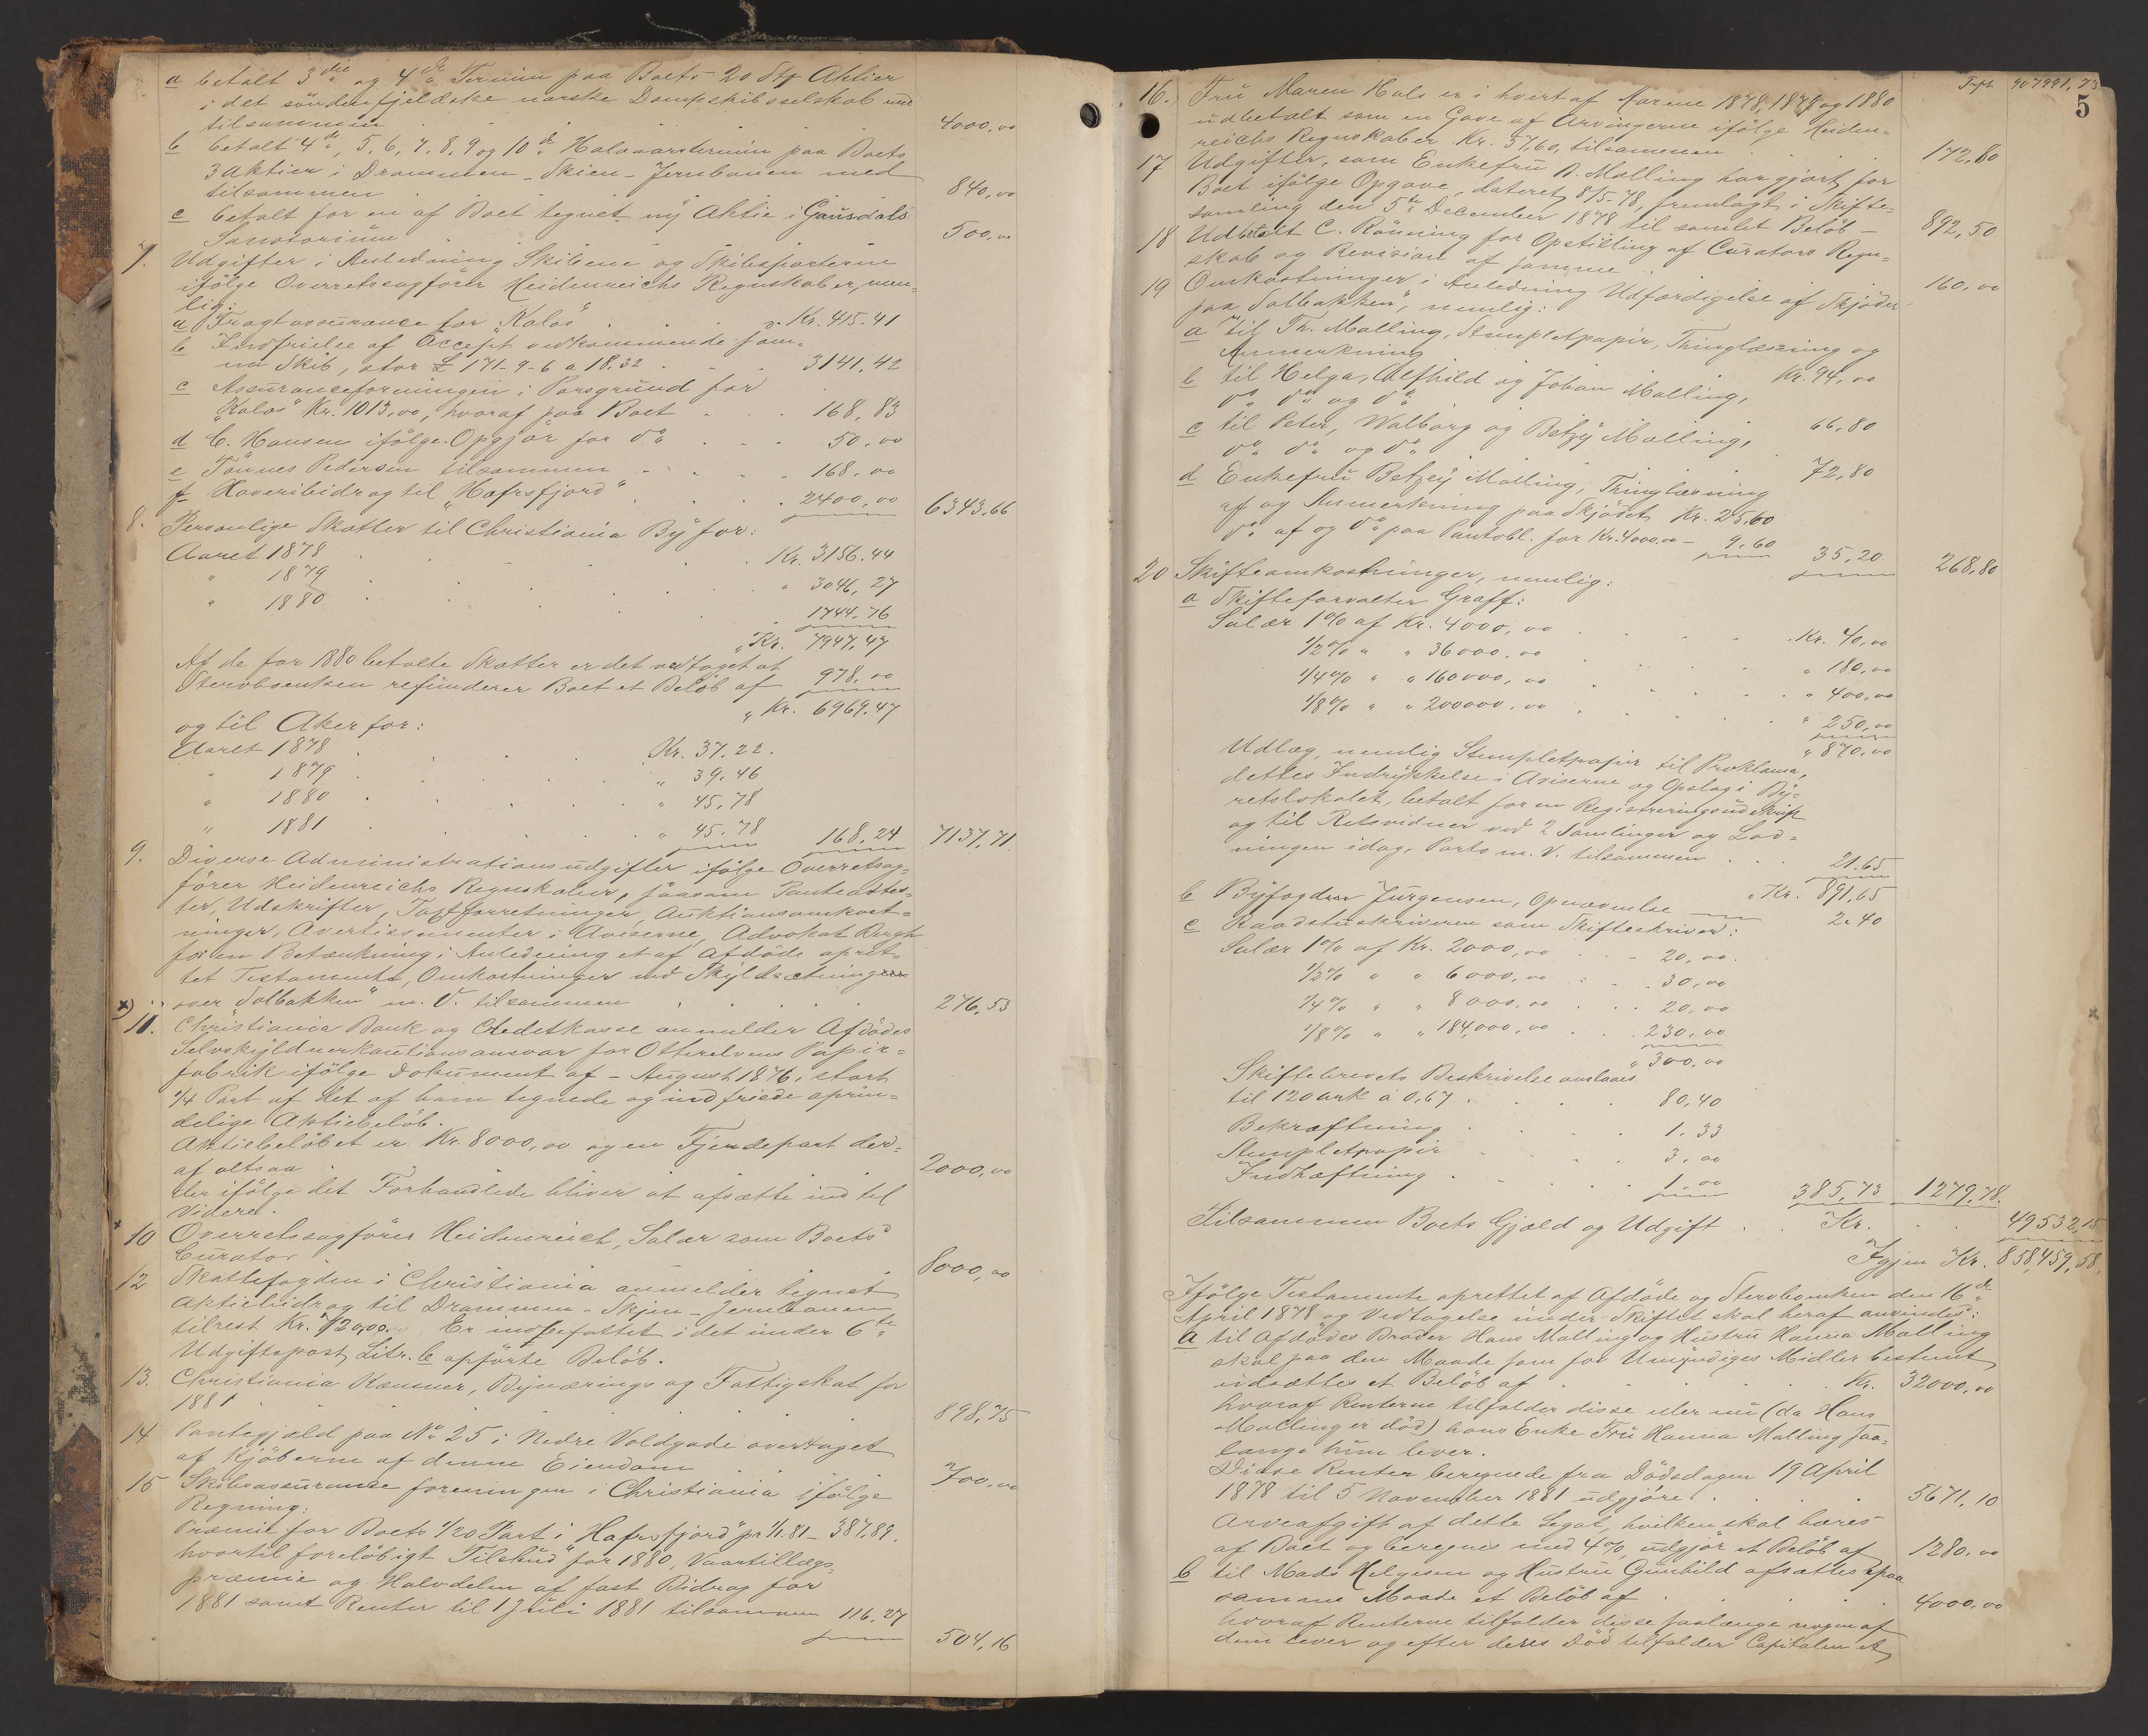 a betalt 3die og 4de Termin paa Boets 20 Stk Aktier
i det söndenfjeldske norske Dampskibsselskab med
tilsammen 4000,00
b betalt 4de, 5, 6, 7, 8, 9 og 10de Halvaarstermin paa Boets
3 Aktier i Drammen-Skien-Jernbanen med
tilsammen 840,00
c betalt for en af Boet tegnet ny Aktie i Gausdals
Sanatorium 500,00
7. Udgifter i Anledning Skibene og Skibsparterne
ifölge Overretssagförer Heidenreichs Regnskaber, nem-
lig:
a Fragtassurance for "Kalos" Kr. 415.41
b Indfrielse af Accept vedkommende sam-
me Skib, stor £ 171-9-6 a 18.32 3141,42
c Assuranceforeningen i Porsgrund for
"Kalos" Kr. 1013,00, hvoraf paa Boet 168,83
d C. Hansen ifölge Opgjör for do 50.00
e Tönnes Pedersen tilsammen 168.00
f Haveribidrag til "Hafrsfjord" 2400,00 6343.66
8. Personlige Skatter til Christiania By for:
Aaret 1878 Kr. 3156.44
" 1879 " 3046,27
" 1880 1744.76
" Kr. 7947,47
Af de for 1880 betalte Skatter er det vedtaget at
Stervboenken refunderer Boet et Belöb af 978,00
" Kr. 6969.47
og til Aker for:
Aaret 1878 Kr. 37.22.
" 1879 " 39.46
" 1880 " 45,78
" 1881 " 45.78 168.24 7137,71.
9. Diverse Administrationsudgifter ifölge Overretssag-
förer Heidenreichs Regnskaber, saasom Panteattes-
ter, Udskrifter, Taxtforretninger, Auktionsomkost-
ninger, Avertissementer i Aviserne, Advokat Bergh
for en Betænkning i Anledning et af Afdöde opret-
tet Testamente, Omkostninger ved Skyldsætning
over "Solbakken" m. V. tilsammen 276,53
x) 11. Christiania Bank og Creditkasse anmelder Afdödes
Selvskyldnerkautionsansvar for Otterelvens Papir-
fabrik ifölge Dokument af - August 1876, stort
1/4 Part af det af ham tegnede og indfriede oprin-
delige Aktiebelöb.
Aktiebelöbet er Kr. 8000,00 og en Fjerdepart der-
af altsaa 2000,00
der ifölge det Forhandlede bliver at afsætte ind til
Videre.
x 10 Overretssagförer Heidenreich, Salær som Boets
Curator 8000,00
12 Skattefogden i Christiania anmelder tegnet
Aktiebidrag til Drammen-Skjen-Jernbanen
tilrest Kr. 720,00. Er indbefattet i det under 6te
Udgiftspost, Litr. b opförte Belöb.
13. Christiania Kæmner, Bynærings og Fattigskat for
1881 898,75
14 Pantegjæld paa No 25 i Nedre Voldgade overtaget
af Kjöberne af denne Eiendom 700,00
15 Skibsassuranceforeningen i Christiania ifölge
Regning:
Præmie for Boets 1/20 Part i "Hafrsfjord" pr 1/1.81 - 387,89.
hvortil foreløbigt Tilskud for 1880, Vaartillægs-
præmie og Halvdelen af fast Bidrag for
1881 samt Renter til 1 Juli 1881 tilsammen 116.27
504,16
Trspt 907991,73
5
16. Fru Maren Hals er i hvert af Aarene 1878, 1879 og 1880
udbetalt som en Gave af Arvingerne ifölge Heiden-
reichs Regnskaber Kr. 57,60, tilsammen 172,80
17 Udgifter, som Enkefru B. Malling har gjort for
Boet ifölge Opgave, dateret 8/5-78, fremlagt i Skifte-
samling den 5te December 1878 til samlet Belöb 892,50
18 Udbetalt C. Rönning for Opstilling af Curators Regn-
skab og Revision af samme 160,00
19 Omkostninger i Anledning Udfærdigelse af Skjöder
paa "Solbakken", nemlig:
a til Th. Malling, Stempletpapir, Thinglæsning og
Anmerkning Kr. 94,00
b til Helga, Alfhild og Johan Malling,
do do og do 66.80
c til Peter, Walborg og Betzy Malling,
do do og do 72,80
d Enkefru Betzey Malling, Thinglæsning
af og Anmerkning paa Skjödet Kr. 25,60
do af og do paa Pantobl. for Kr. 4000.00 - 9.60 35,20 268,80
20 Skifteomkostninger, nemlig:
a Skifteforvalter Graff:
Salær 1% af Kr. 4000,00 Kr. 40,00
1/2% " " 36000,00 " 180,00
1/4% " " 160000,00 " 400,00
1/8% " " 200000.00 " 250,00
" 870,00
Udlæg, nemlig Stempletpapir til Proklama,
dettes Indrykkelse i Aviserne og Opslag i By-
retslokalet, betalt for en Registreringsudskrift
og til Retsvidner ved 2 Samlinger og Lod-
ningen idag, Porto m. V. tilsammen 21.65
" Kr. 891,65
b Byfogden Jürgensen, Opnævnelse 2.40
c Raadstuskriveren som Skifteskriver:
Salær 1% af Kr. 2000,00 20,00.
1/2% " " 6000,00 30,00
1/4% " " 8000,00 20,00
1/8% " " 184,000,00 230,00
" 300,00
Skiftebrevets Beskrivelse anslaaes
til 120 ark a 0,67 80,40
Bekræftning 1.33
Stempletpapir 3,00
Indhæftning 1.00 385,73 1279,78.
Tilsammen Boets Gjæld og Udgift Kr. 49532,15
Igjen Kr. 858,459,58.
Ifölge Testamente oprettet af Afdöde og Stervboenken den 16de
April 1878 og Vedtagelse under Skiftet skal heraf anvendes:
a til Afdödes Broder Hans Malling og Hustru Hanna Malling
skal paa den Maade som for Umyndiges Midler bestemt
udsættes et Belöb af Kr. 32000,00
hvoraf Renterne tilfalder disse eller nu (da Hans
Malling er död) hans Enke Fru Hanna Malling saa-
længe hun lever.
Disse Renter beregnede fra Dödsdagen 19 April
1878 til 5 November 1881 udgjöre 5671,10
Arveafgift af dette Legat, hvilken skal bæres
af Boet og beregnes med 4%, udgjör et Belöb af 1280,00
b til Mads Helgesen og Hustru Gunhild afsættes paa
samme Maade et Belöb af 4000,00
hvoraf Renterne tilfalder disse saalænge nogen af
dem lever og efter deres Död tilfalder Capitalen et